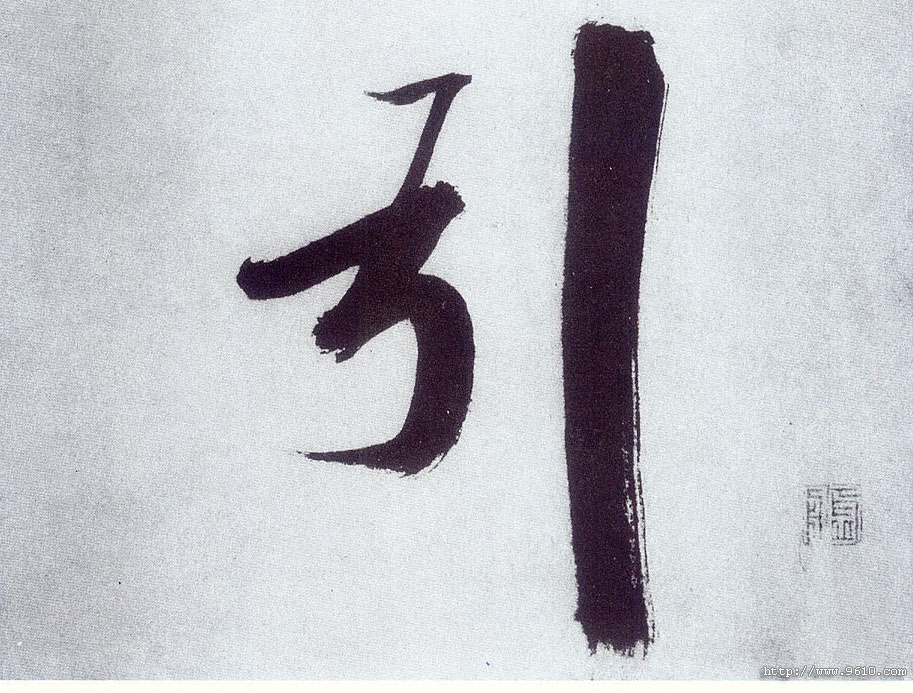 引
http://www.9610.com